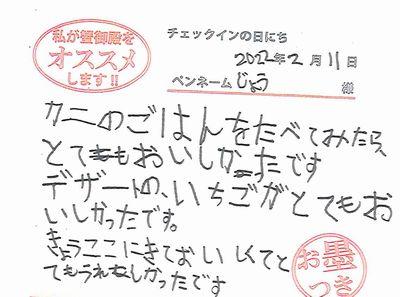 私が蟹御殿を
オススメ
します!!
チェックインの日にち
2022年2月11日
ペンネーム じょう 様
カニのごはんをたべてみたら、
とてもおいしかったです
デザートの、いちごがとてもお
いしかったです。
きょうここにきておいしくてと
てもうれしかったです
お墨
つき